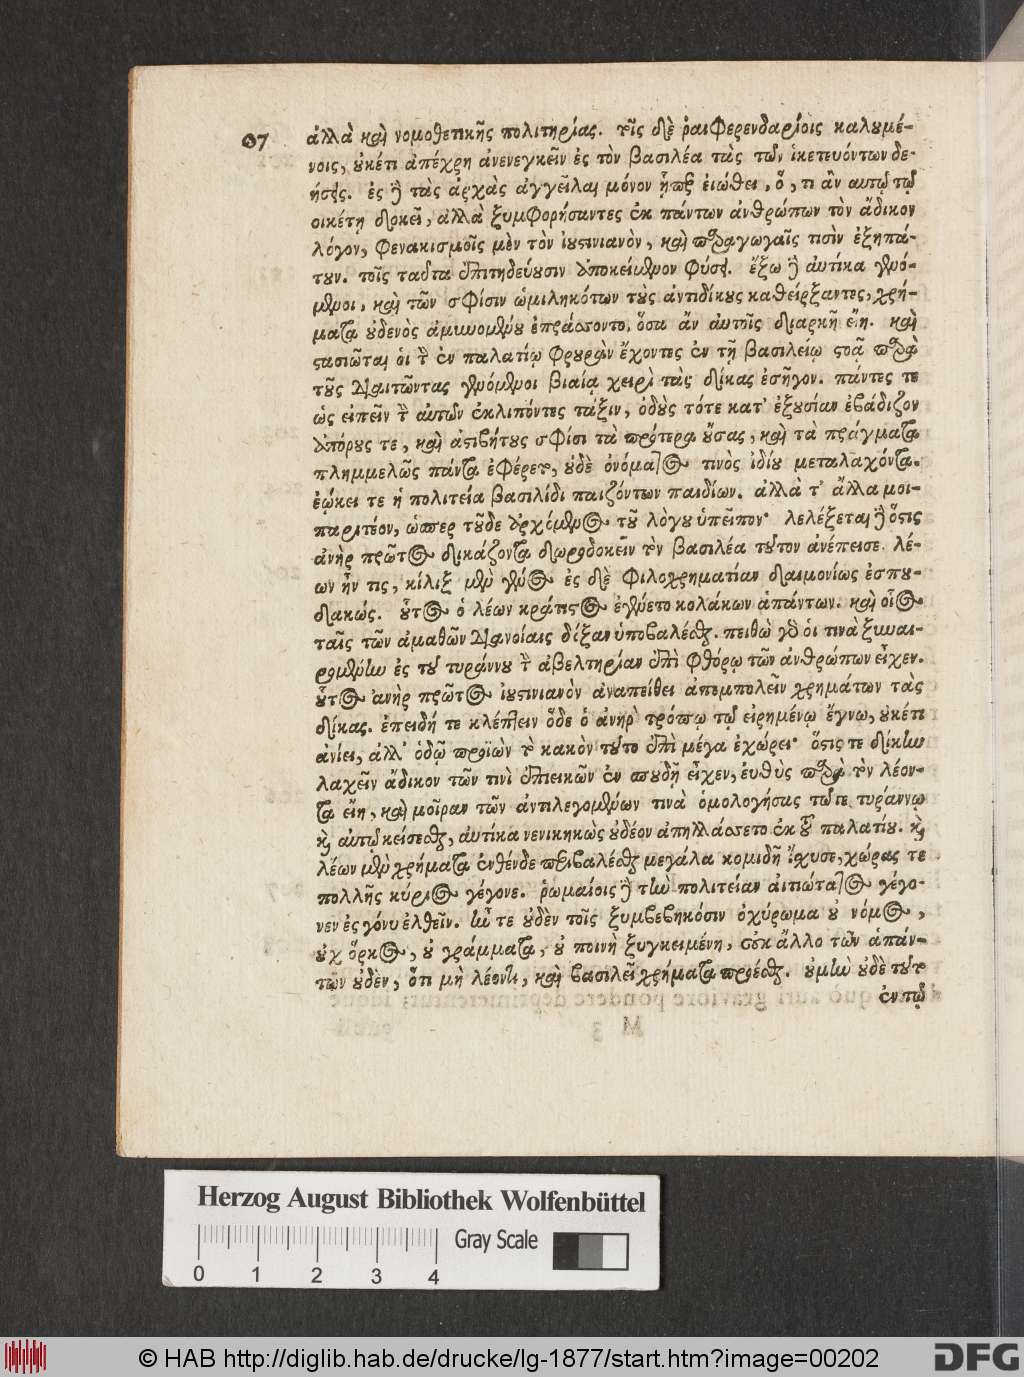 97
ἀλλὰ καὶ νομοθετικῆς πολιτηρίας. τοῖς δὲ ῥαιφερενδαρίοις καλουμέ-
νοις, οὐκέτι ἀπέχρη ἀνενεγκεῖν ἐς τὸν βασιλέα τὰς τῶν ἱκετευόντων δε-
ήσεις. ἐς δὲ τὰς ἀρχὰς ἀγγεῖλαι μόνον ᾗπερ ἐιώθει, ὅ, τι ἂν αὐτῷ τῷ
οἰκέτῃ δοκεῖ, ἀλλὰ ξυμφορήσαντες ἐκ πάντων ἀνθρώπων τὸν ἄδικον
λόγον, φενακισμοῖς μὲν τὸν ἰουστινιανὸν, καὶ παραγωγαῖς τισὶν ἐξηπά-
τουν. τοῖς ταῦτα ἐπιτηδεύουσιν ὑποκείμενον φύσει. ἔξω δὲ αὐτίκα γενό-
μενοι, καὶ τῶν σφίσιν ὡμιληκότων τοὺς ἀντιδίκους καθείρξαντες, χρή-
ματα οὐδενὸς ἀμυνομένου ἐπράσσοντο, ὅσα ἂν αὐτοῖς διαρκῆ εἴη. καὶ
στασιῶται οἱ τὴν ἐν παλατίῳ φρουρὰν ἔχοντες ἐν τῇ βασιλείῳ στοᾷ παρὰ
τοῦς διαιτῶντας γενόμενοι βιαίᾳ χειρὶ τὰς δίκας ἐσῆγον. πάντες τε
ὡς εἰπεῖν τὴν αὐτῶν ἐκλιπόντες τάξιν, ὁδοὺς τότε κατ' ἐξουσίαν ἐβάδιζον
ἀπόρους τε, καὶ ἀστιβήτους σφίσι τὰ πρότερα οὔσας, καὶ τὰ πράγματα
πλημμελῶς πάντα ἐφέρετο, οὐδὲ ὀνόματος τινὸς ἰδίου μεταλαχόντα.
ἐῴκει τε ἡ πολιτεία βασιλίδι παιζόντων παιδίων. ἀλλὰ τ' ἄλλα μοι-
παριτέον, ὥσπερ τοῦδε ἀρχόμενος τοῦ λόγου ὑπεῖπον· λελέξεται δὲ ὅστις
ἀνὴρ πρῶτος δικάζοντα δωροδοκεῖν τὸν βασιλέα τοῦτον ἀνέπεισε. λέ-
ων ἦν τις, κίλιξ μὲν γένος ἐς δὲ φιλοχρηματίαν δαιμονίως ἐσπου-
δακώς. οὗτος ὁ λέων κράτιστος ἐγένετο κολάκων ἁπάντων. καὶ οἷος
ταῖς τῶν ἀμαθῶν διανοίαις δίξαν ὑποβαλέσθαι. πειθὼ γάρ οἱ τινὰ ξυναι-
ρομένην ἐς τοῦ τυράννου τὴν ἀβελτηρίαν ἐπὶ φθόρῳ τῶν ἀνθρώπων εἶχεν.
οὗτος ἀνὴρ πρῶτος ἰουστινιανὸν ἀναπείθει ἀπεμπολεῖν χρημάτων τὰς
δίκας. ἐπειδή τε κλέπτειν ὧδε ὁ ἀνὴρ τρόπῳ τῷ εἰρημένῳ ἔγνω, οὐκέτι
ἀνίει, ἀλλ' ὁδῷ προϊὼν τὸ κακὸν τοῦτο ἐπὶ μέγα ἐχώρει· ὅστις τε δίκην
λαχεῖν ἄδικον τῶν τινὶ ἐπιεικῶν ἐν σπουδῇ εἶχεν, εὐθὺς παρὰ τὸν λέον-
τα εἴη, καὶ μοῖραν τῶν ἀντιλεγομένων τινὰ ὁμολογήσας τῷ τε τυράννῳ
καὶ αὐτῷ κείσεσθαι, αὐτίκα νενικηκὼς οὐδέον ἀπηλλάσσετο ἐκ τοῦ παλατίου. καὶ
λέων μὲν χρήματα ἐνθένδε περιβαλέσθαι μεγάλα κομιδῆ ἴχυσε, χώρας τε
πολλῆς κύριος γέγονε. ῥωμαίοις δὲ τὴν πολιτείαν αἰτιώτατος γέγο-
νεν ἐς γόνυ ἐλθεῖν. ἦν τε οὐδὲν τοῖς ξυμβεβηκόσιν ὀχύρωμα οὐ νόμος,
οὐχ ὅρκος, οὐ γράμματα, οὐ ποινὴ ξυγκειμένη, οὐκ ἄλλο τῶν ἁπάν-
των οὐδὲν, ὅτι μὴ λέοντι, καὶ βασιλεῖ χρήματα προέσθαι. οὐμὴν οὐδὲ τοῦτο
ἐν τῷ
Herzog August Bibliothek Wolfenbüttel
Gray Scale
0 1 2 3 4
© HAB http://diglib.hab.de/drucke/lg-1877/start.htm?image=00202
DFG